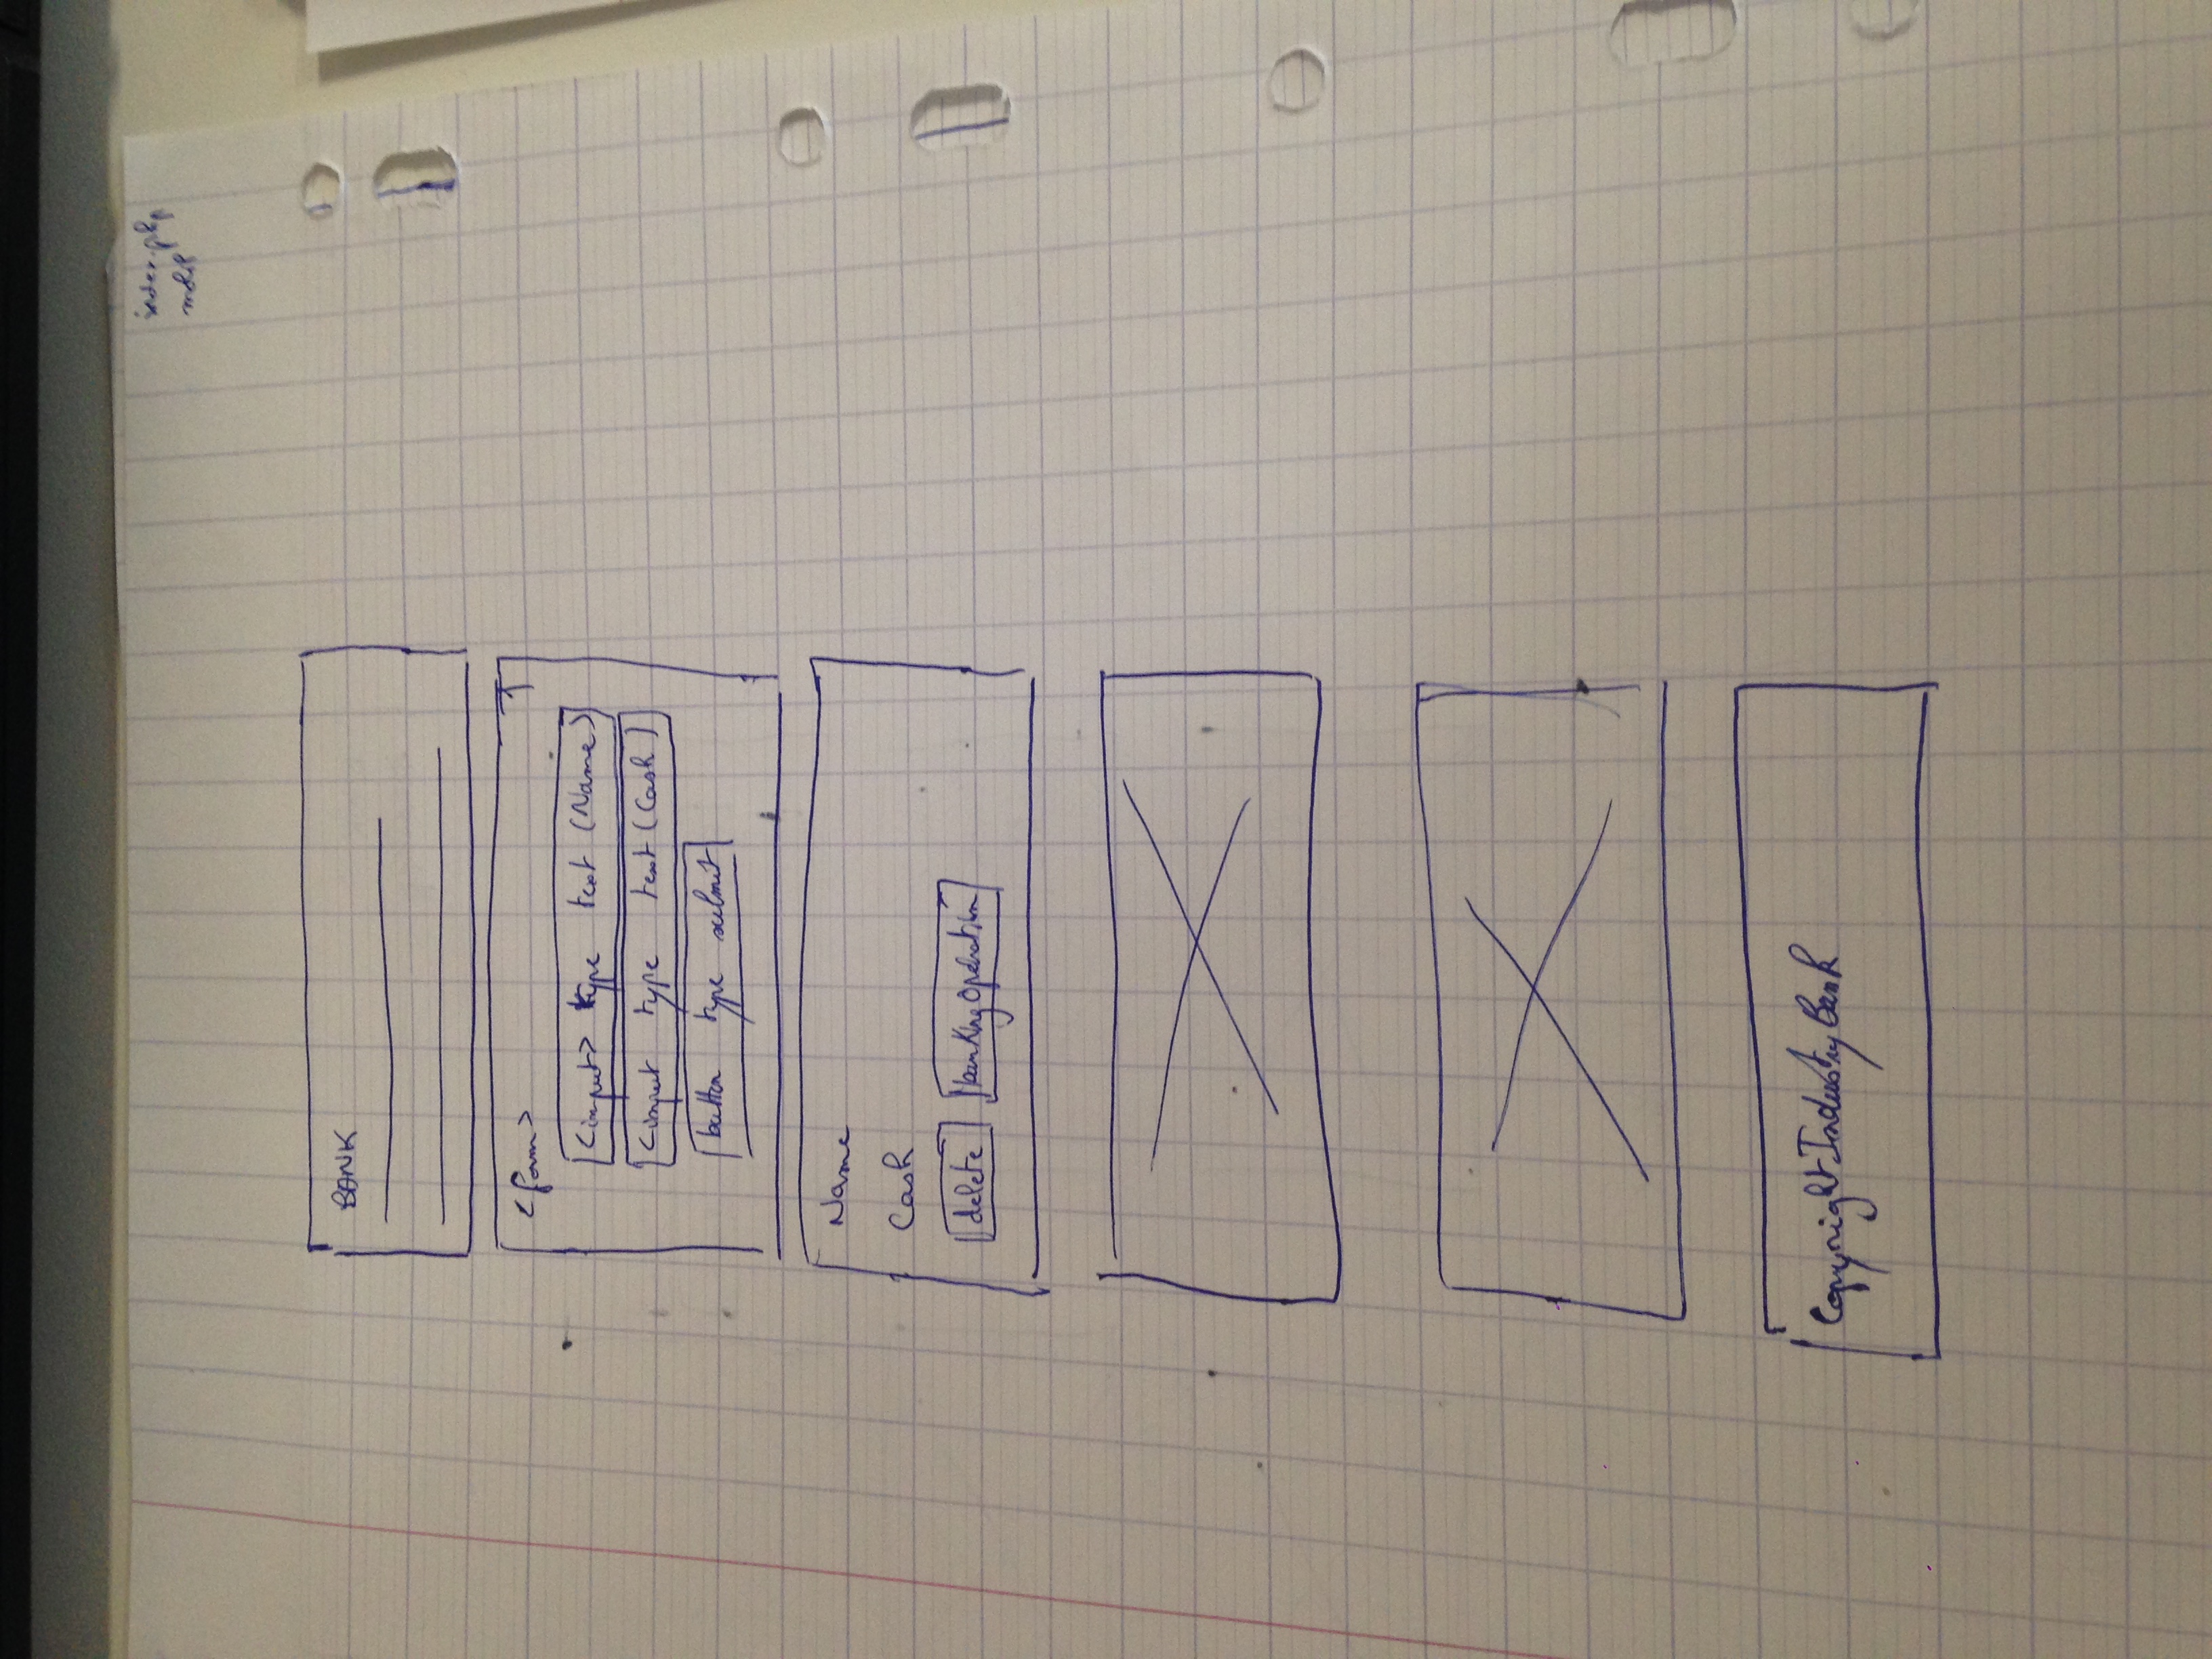 index.php
mobil
BANK
<form>
<input> type text (Name)
<input type text (Cash)
button type submit
Name
Cash
delete bankingOperation
Copyright Industry Bank